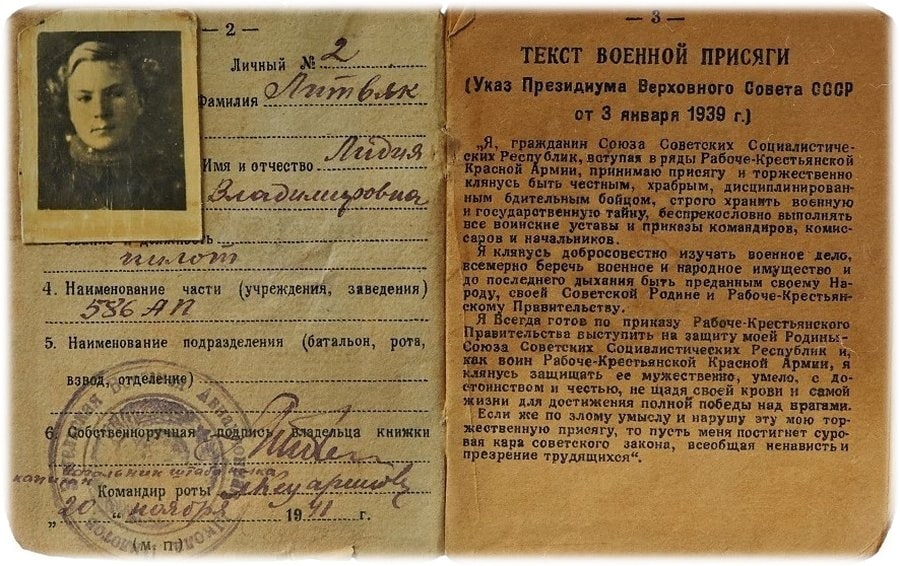 — 2 —
Личный № 2
Фамилия Литвяк
Имя и отчество Лидия
Владимировна
пилот
4. Наименование части (учреждения, заведения)
586 АП
5. Наименование подразделения (батальон, рота,
взвод, отделение)
6. Собственноручная подпись владельца книжки
капитан начальник штаба полка
Командир роты
„20 “ ноября 1941 г.
(М. П.)
— 3 —
ТЕКСТ ВОЕННОЙ ПРИСЯГИ
(Указ Президиума Верховного Совета СССР
от 3 января 1939 г.)
„Я, гражданин Союза Советских Социалистиче-
ских Республик, вступая в ряды Рабоче-Крестьянской
Красной Армии, принимаю присягу и торжественно
клянусь быть честным, храбрым, дисциплинирован-
ным бдительным бойцом, строго хранить военную
и государственную тайну, беспрекословно выполнять
все воинские уставы и приказы командиров, комис-
саров и начальников.
Я клянусь добросовестно изучать военное дело,
всемерно беречь военное и народное имущество и
до последнего дыхания быть преданным своему На-
роду, своей Советской Родине и Рабоче-Крестьян-
скому Правительству.
Я Всегда готов по приказу Рабоче-Крестьянского
Правительства выступить на защиту моей Родины,
Союза Советских Социалистических Республик и,
как воин Рабоче-Крестьянской Красной Армии, я
клянусь защищать ее мужественно, умело, с до-
стоинством и честью, не щадя своей крови и самой
жизни для достижения полной победы над врагами.
Если же по злому умыслу я нарушу эту мою тор-
жественную присягу, то пусть меня постигнет суро-
вая кара советского закона, всеобщая ненависть и
презрение трудящихся“.